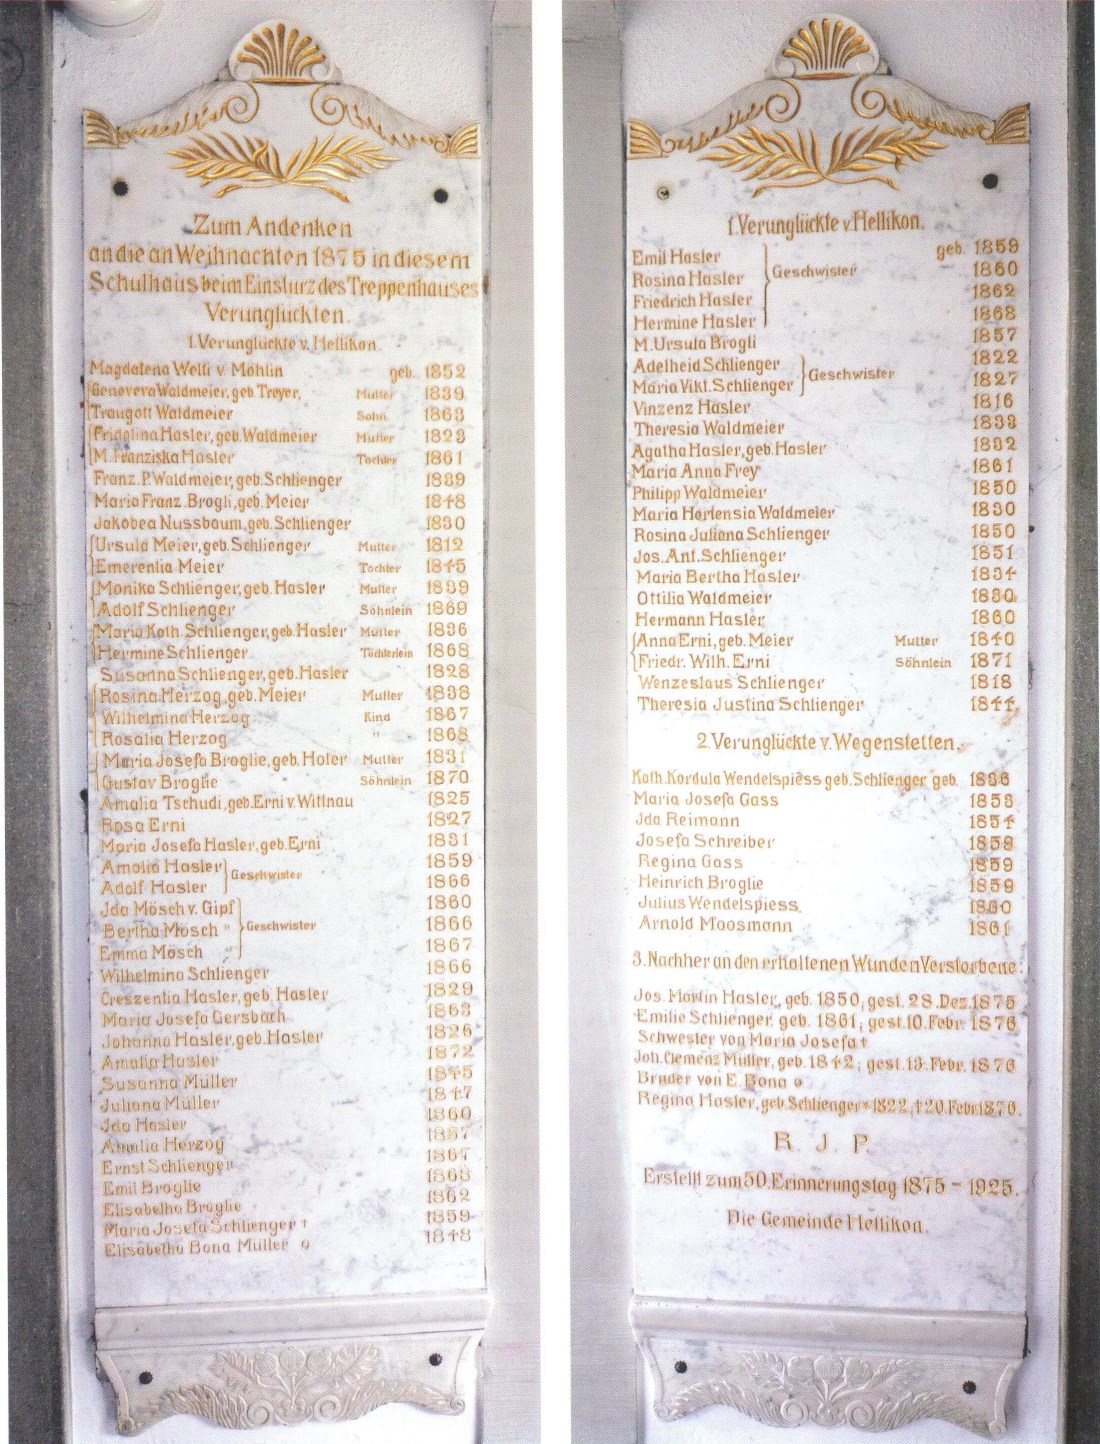 Zum Andenken
an die an Weihnachten 1875 in diesem
Schulhaus beim Einsturz des Treppenhauses
Verunglückten.
1. Verunglückte v. Hellikon.
Magdalena Welti v. Möhlin geb. 1852
Genovera Waldmeier, geb. Treyer, Mutter 1839
Traugott Waldmeier Sohn 1863
Fridolina Hasler, geb. Waldmeier Mutter 1823
M. Franziska Hasler Tochter 1861
Franz. P. Waldmeier, geb. Schlienger 1839
Maria Franz. Brogli, geb. Meier 1848
Jakobea Nussbaum, geb. Schlienger 1830
Ursula Meier, geb. Schlienger Mutter 1812
Emerentia Meier Tochter 1845
Monika Schlienger, geb. Hasler Mutter 1839
Adolf Schlienger Söhnlein 1869
Maria Kath. Schlienger, geb. Hasler Mutter 1836
Hermine Schlienger Töchterlein 1868
Susanna Schlienger, geb. Hasler 1828
Rosina Herzog, geb. Meier Mutter 1838
Wilhelmina Herzog Kind 1867
Rosalia Herzog " 1868
Maria Josefa Broglie, geb. Hofer Mutter 1831
Gustav Broglie Söhnlein 1870
Amalia Tschudi, geb. Erni v. Wittnau 1825
Rosa Erni 1827
Maria Josefa Hasler, geb. Erni 1831
Amalia Hasler 1859
Geschwister
Adolf Hasler 1866
Ida Mösch v. Gipf 1860
Bertha Mösch " Geschwister 1866
Emma Mösch " 1867
Wilhelmina Schlienger 1866
Creszentia Hasler, geb. Hasler 1829
Maria Josefa Gersbach 1863
Johanna Hasler, geb. Hasler 1826
Amalia Hasler 1872
Susanna Müller 1845
Juliana Müller 1847
Ida Hasler 1860
Amalia Herzog 1857
Ernst Schlienger 1867
Emil Broglie 1868
Elisabetha Broglie 1862
Maria Josefa Schlienger † 1859
Elisabetha Bona Müller o 1848
1. Verunglückte v. Hellikon.
Emil Hasler geb. 1859
Rosina Hasler Geschwister 1860
Friedrich Hasler 1862
Hermine Hasler 1868
M. Ursula Brogli 1857
Adelheid Schlienger 1822
Geschwister
Maria Vikt. Schlienger 1827
Vinzenz Hasler 1816
Theresia Waldmeier 1833
Agatha Hasler, geb. Hasler 1832
Maria Anna Frey 1861
Philipp Waldmeier 1850
Maria Hortensia Waldmeier 1830
Rosina Juliana Schlienger 1850
Jos. Ant. Schlienger 1851
Maria Bertha Hasler 1834
Ottilia Waldmeier 1830
Hermann Hasler 1860
Anna Erni, geb. Meier Mutter 1840
Friedr. Wilh. Erni Söhnlein 1871
Wenzeslaus Schlienger 1818
Theresia Justina Schlienger 1844
2. Verunglückte v. Wegenstetten.
Kath. Kordula Wendelspiess geb. Schlienger geb. 1836
Maria Josefa Gass 1853
Ida Reimann 1854
Josefa Schreiber 1859
Regina Gass 1859
Heinrich Broglie 1859
Julius Wendelspiess 1860
Arnold Moosmann 1861
3. Nachher an den erhaltenen Wunden Verstorbene:
Jos. Martin Hasler, geb. 1850, gest. 28. Dez. 1875
Emilie Schlienger, geb. 1861, gest. 10. Febr. 1876
Schwester von Maria Josefa †
Joh. Clemenz Müller, geb. 1842; gest. 13. Febr. 1876
Bruder von E. Bona o
Regina Hasler, geb. Schlienger * 1822, † 20. Febr. 1876.
R. J. P.
Erstellt zum 50. Erinnerungstag 1875 - 1925.
Die Gemeinde Hellikon.